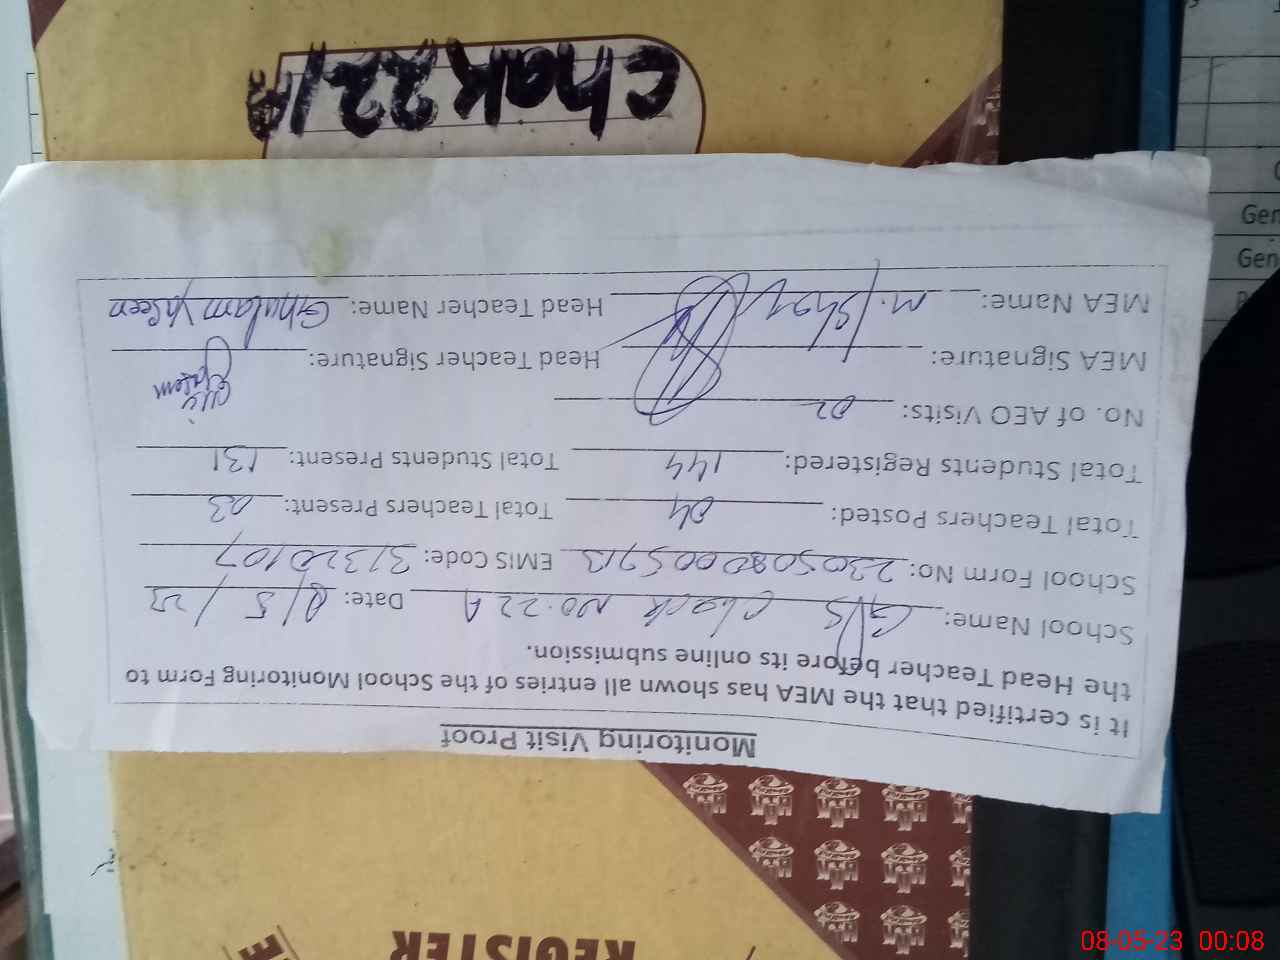 Monitoring Visit Proof
It is certified that the MEA has shown all entries of the School Monitoring Form to
the Head Teacher before its online submission.
School Name: G/S Chack No. 22 A Date: 8/5/23
School Form No: EMIS Code: 31320107
Total Teachers Posted: 04 Total Teachers Present: 03
Total Students Registered: 144 Total Students Present: 131
No. of AEO Visits: 02
MEA Signature: Head Teacher Signature:
MEA Name: Head Teacher Name: Ghulam Yaseen
Chak 22/A
REGISTER
Gen
Gen
08-05-23 00:08